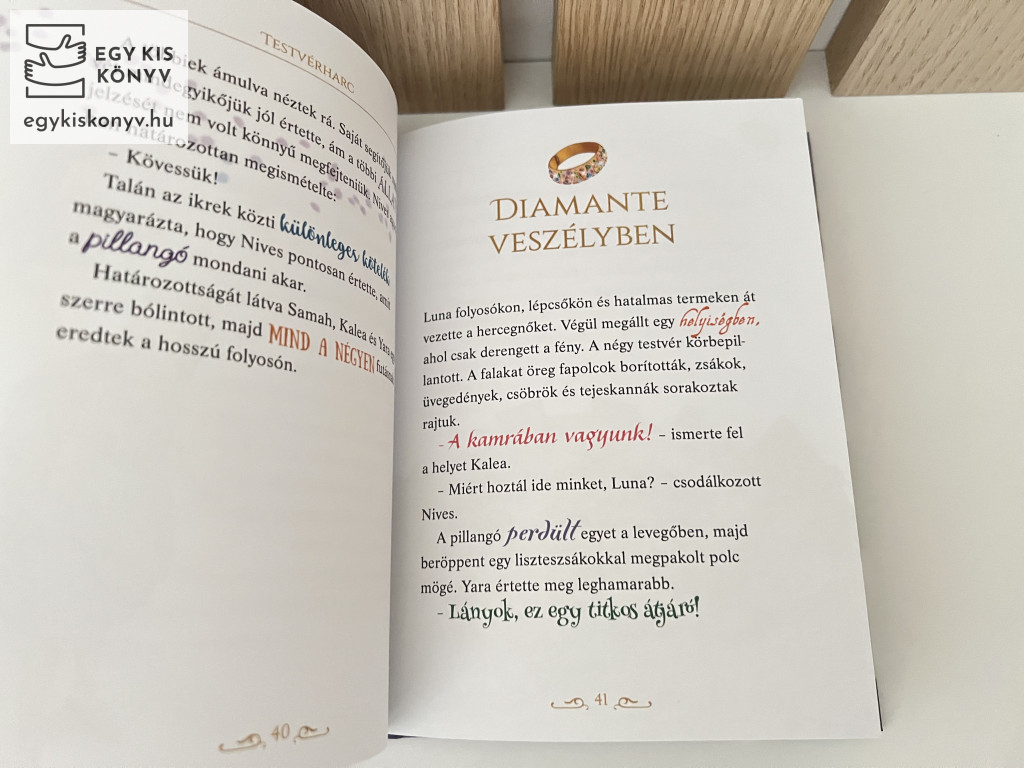 EGY KIS
KÖNYV
egykiskonyv.hu
TESTVÉRHARC
ámulva néztek rá. Saját
jól értette, ám a többi
jelzését nem volt könnyű megfejteniük. Nives
határozottan megismételte:
– Kövessük!
Talán az ikrek közti különleges kötelék
magyarázta, hogy Nives pontosan értette, amit
a pillangó mondani akar.
Határozottságát látva Samah, Kalea és Yara
szerre bólintott, majd MIND A NÉGYEN futásnak
eredtek a hosszú folyosón.
40
DIAMANTE
VESZÉLYBEN
Luna folyosókon, lépcsőkön és hatalmas termeken át
vezette a hercegnőket. Végül megállt egy helyiségben,
ahol csak derengett a fény. A négy testvér körbepil-
lantott. A falakat öreg fapolcok borították, zsákok,
üvegedények, csöbrök és tejeskannák sorakoztak
rajtuk.
– A kamrában vagyunk! – ismerte fel
a helyet Kalea.
– Miért hoztál ide minket, Luna? – csodálkozott
Nives.
A pillangó perdült egyet a levegőben, majd
beröppent egy liszteszsákokkal megpakolt polc
mögé. Yara értette meg leghamarabb.
– Lányok, ez egy titkos átjáró!
41